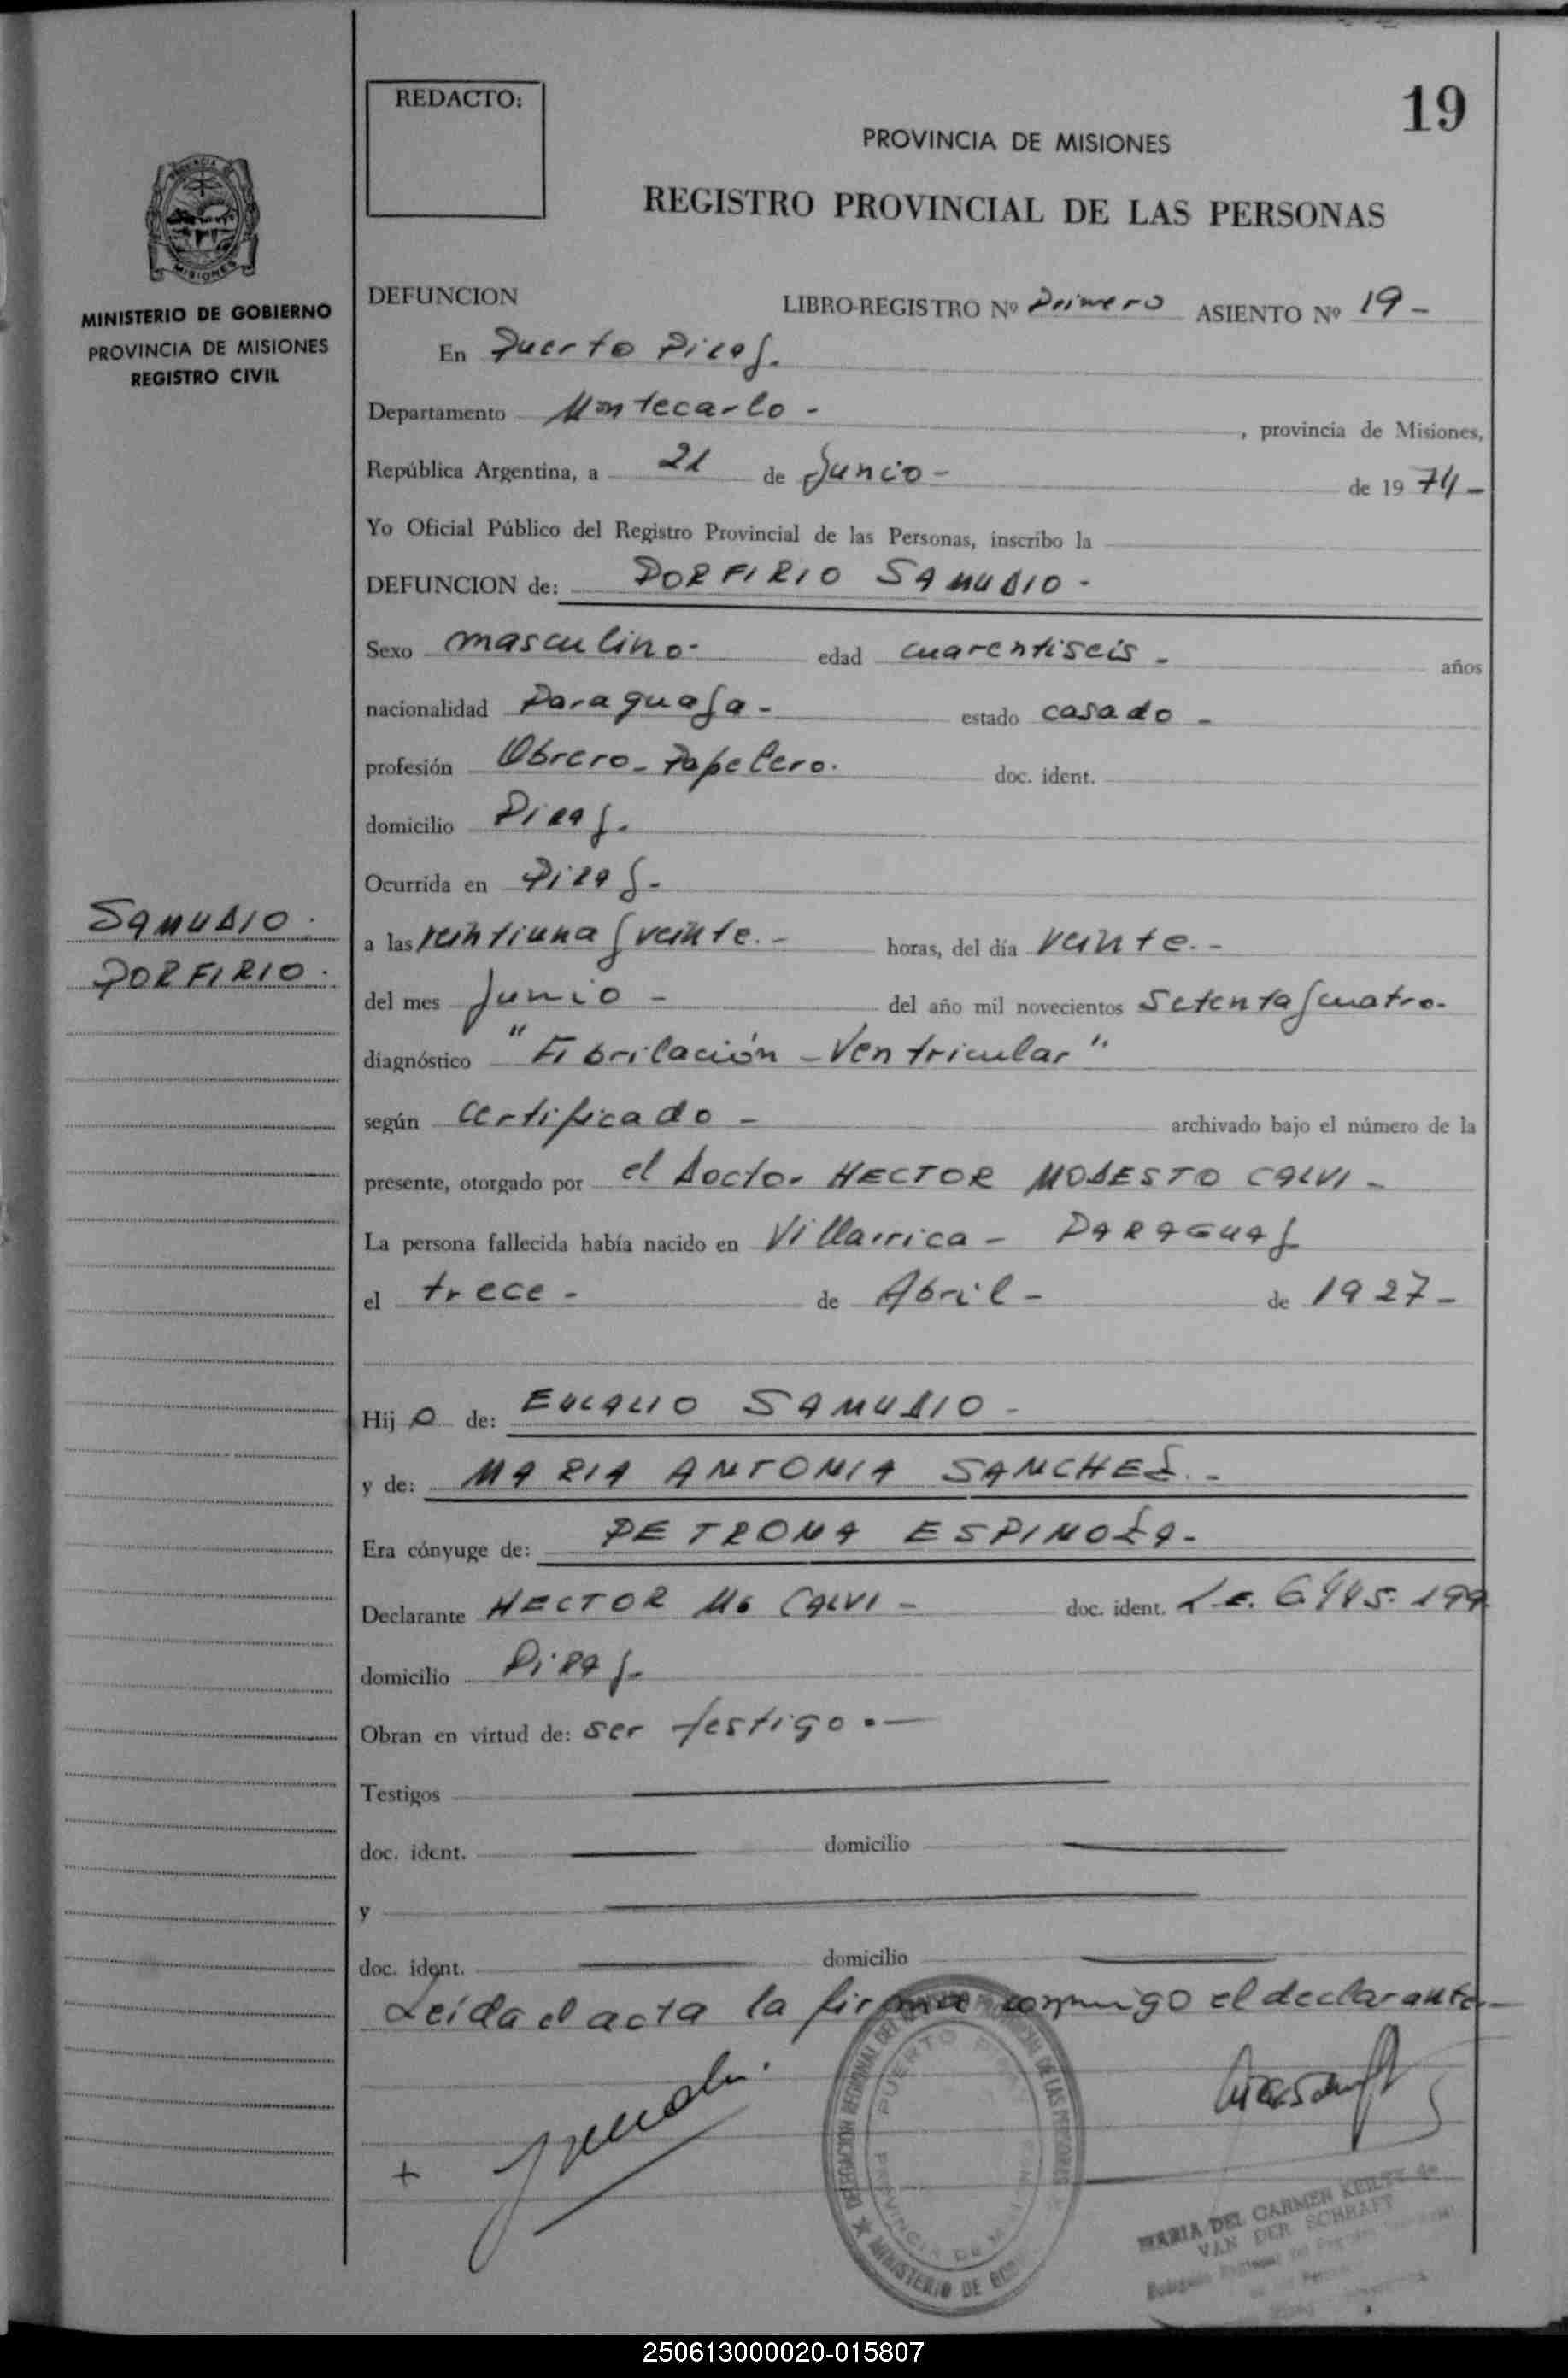 REDACTO:
19
PROVINCIA DE MISIONES
REGISTRO PROVINCIAL DE LAS PERSONAS
PROVINCIA
MISIONES
MINISTERIO DE GOBIERNO
PROVINCIA DE MISIONES
REGISTRO CIVIL
DEFUNCION LIBRO-REGISTRO Nº Primero ASIENTO Nº 19 -
En Puerto Piray.
Departamento Montecarlo - , provincia de Misiones,
República Argentina, a 21 de Junio - de 19 74 -
Yo Oficial Público del Registro Provincial de las Personas, inscribo la
DEFUNCION de: PORFIRIO SAMUDIO -
Sexo masculino - edad cuarentiseis - años
nacionalidad Paraguaya - estado casado -
profesión Obrero - Papelero. doc. ident.
domicilio Piray.
Ocurrida en Piray -
SAMUDIO.
PORFIRIO.
a las veintiuna y veinte. - horas, del día veinte. -
del mes Junio - del año mil novecientos setenta y cuatro -
diagnóstico "Fibrilación - Ventricular"
según certificado - archivado bajo el número de la
presente, otorgado por el Doctor HECTOR MODESTO CALVI -
La persona fallecida había nacido en Villarrica - PARAGUAY
el trece - de Abril - de 1927 -
Hij o de: EULALIO SAMUDIO -
y de: MARIA ANTONIA SANCHEZ. -
Era cónyuge de: PETRONA ESPINOZA -
Declarante HECTOR Mo CALVI - doc. ident. L.E. 6.445.199
domicilio Piray -
Obran en virtud de: ser testigo . —
Testigos
doc. ident. domicilio
y
doc. ident. domicilio
Leída el acta la firma conmigo el declarante -
DELEGACION REGIONAL DEL REGISTRO PROVINCIAL DE LAS PERSONAS
PUERTO PIRAY
PROVINCIA DE
MINISTERIO DE
MARIA DEL CARMEN de
VAN DER SCHRAFT
250613000020-015807